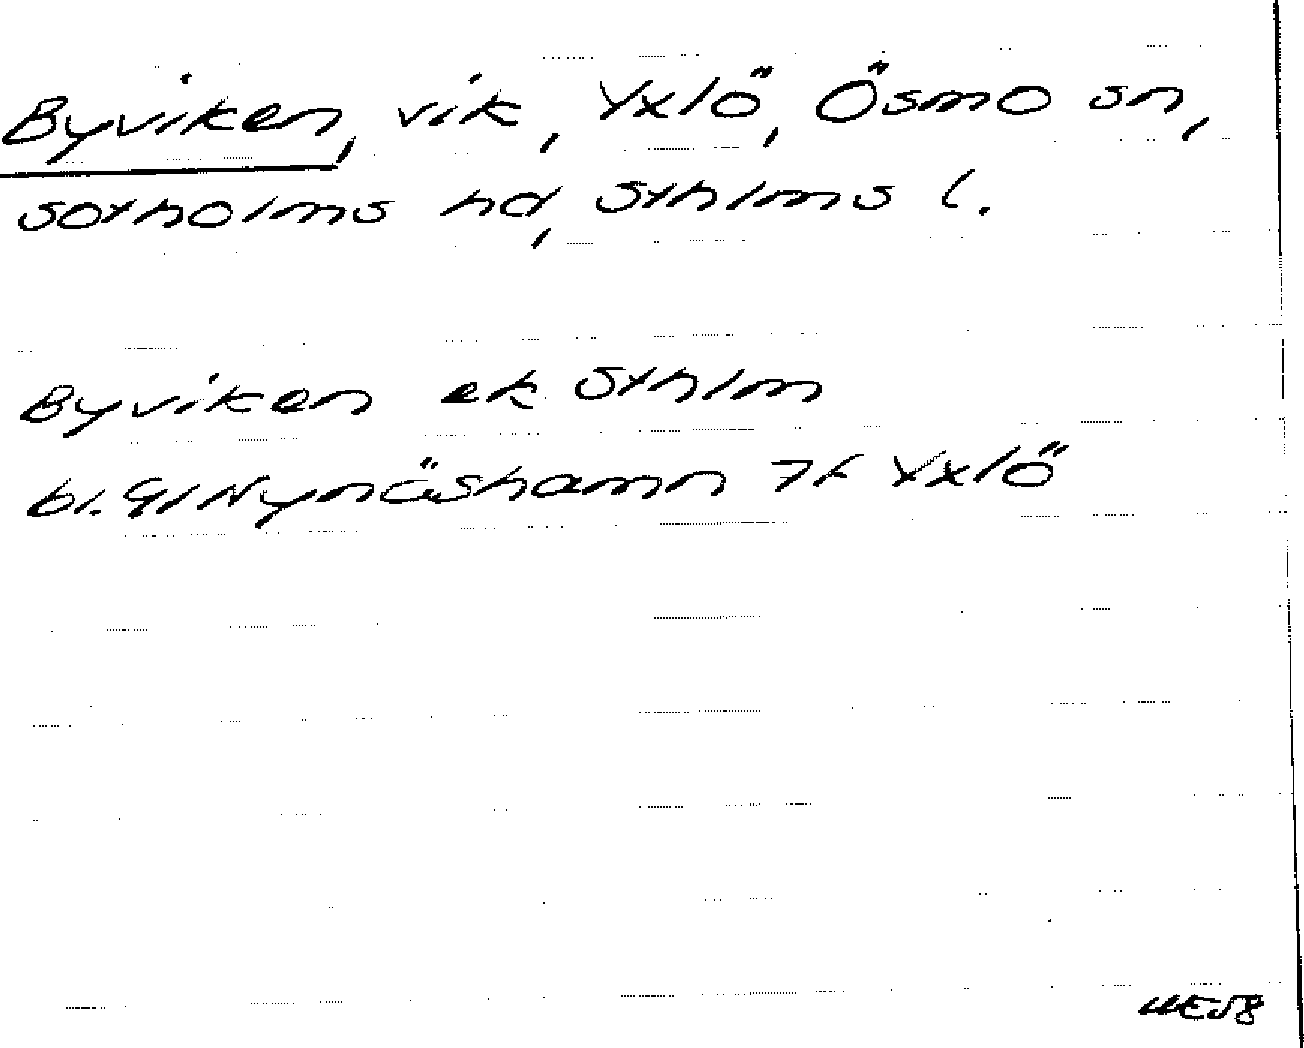 Byviken, vik, Yxlö, Ösmo sn,
Sotholms hd, Sthlms l.
Byviken ek Sthlm
bl. 9I Nynäshamn 7f Yxlö